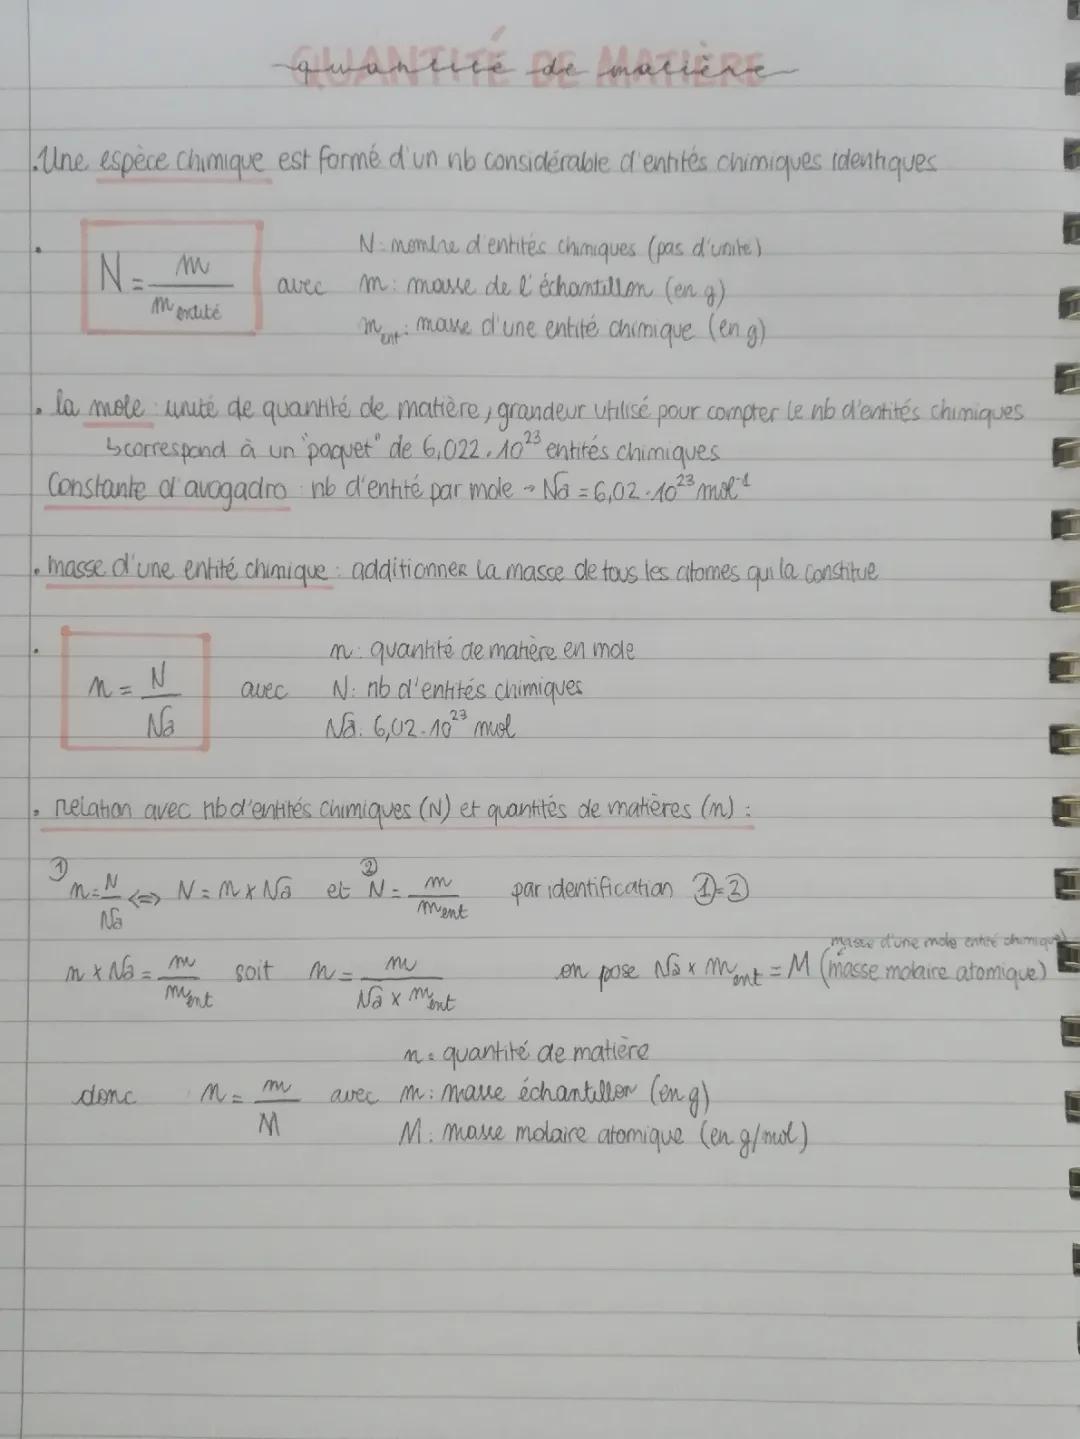 QUANTITÉ DE MATIÈRE
quantité de matière
.Une espèce chimique est formé d'un nb considérable d'entités chimiques identiques
N = m / m entité avec
N: nombre d'entités chimiques (pas d'unité)
m: masse de l'échantillon (en g)
m ent: masse d'une entité chimique (en g)
. la mole : unité de quantité de matière, grandeur utilisé pour compter le nb d'entités chimiques
↳ correspond à un "paquet" de 6,022.10²³ entités chimiques
Constante d'avogadro : nb d'entité par mole → Na = 6,02.10²³ mol⁻¹
. masse d'une entité chimique : additionner la masse de tous les atomes qui la constitue
n = N / Na avec
n: quantité de matière en mole
N: nb d'entités chimiques
Na: 6,02.10²³ mol
. relation avec nb d'entités chimiques (N) et quantités de matières (n) :
① n = N / Na ⇔ N = n x Na et ② N = m / ment par identification ①=②
masse d'une mole entité chimique)
n x Na = m / ment soit n = m / Na x ment on pose Na x ment = M (masse molaire atomique)
n = quantité de matière
donc n = m / M avec m: masse échantillon (en g)
M: masse molaire atomique (en g/mol)